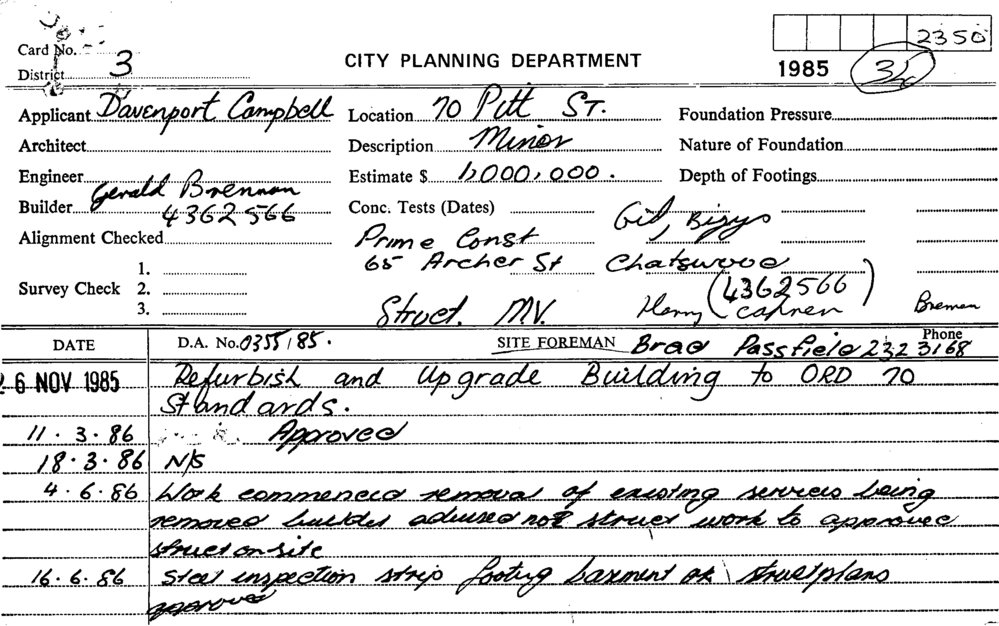 2350
Card No.
District 3
CITY PLANNING DEPARTMENT
1985
Applicant Davenport Campbell
Location 70 Pitt St.
Foundation Pressure
Architect
Description Minor
Nature of Foundation
Engineer
Estimate $ 1,000,000.
Depth of Footings
Gerald Brennan
Builder 4362566
Conc. Tests (Dates)
Alignment Checked
Prime Const
65 Archer St Chatswood
Survey Check
1.
2.
3.
(4362566)
Struct. MV.
Brennan
DATE
D.A. No. 0355/85.
SITE FOREMAN Brad Passfield
Phone 232 3168
6 NOV 1985 Refurbish and Upgrade Building to ORD 70
Standards.
11.3.86 Approved
18.3.86 N/S
4.6.86 Work commenced removal of existing services being
removed builder advised not struct work to approved
struct on site
16.6.86 Steel inspection strip footing basment ok struct plans
approved